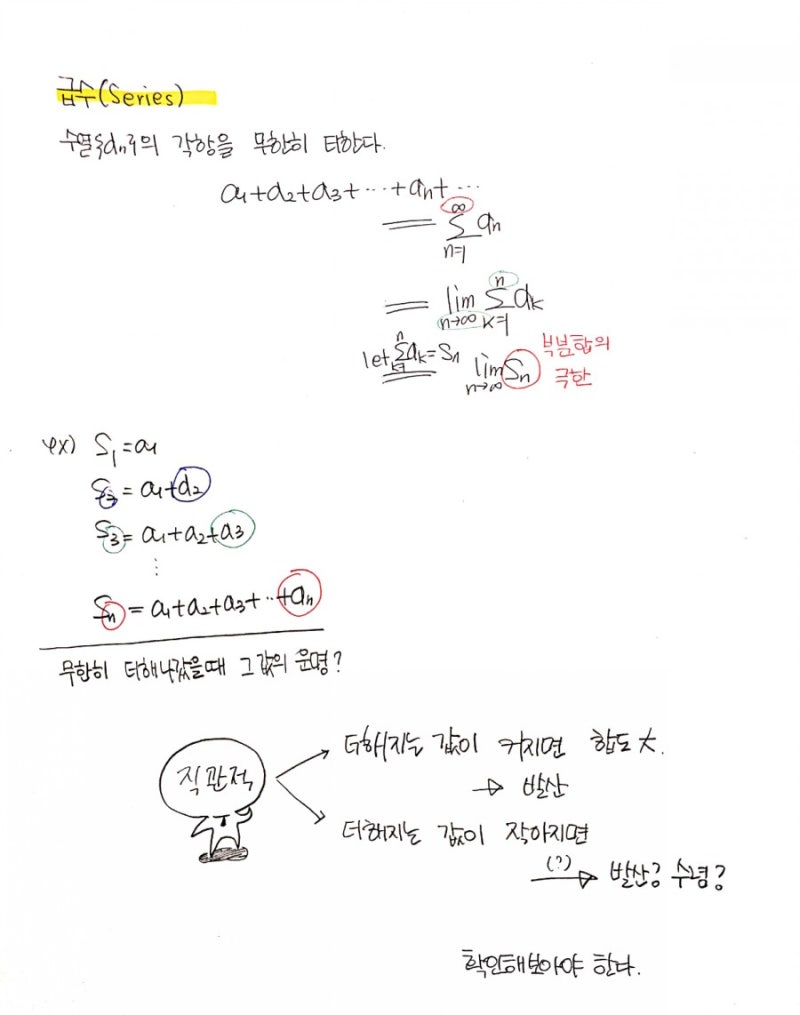 급수(Series)
수열{aₙ}의 각항을 무한히 더한다.
a₁+a₂+a₃+⋯+aₙ+⋯
= ∑_{n=1}^{∞} aₙ
= lim_{n→∞} ∑_{k=1}^{n} aₖ
let ∑_{k=1}^{n} aₖ=Sₙ = lim_{n→∞} Sₙ 부분합의
극한
ex) S₁=a₁
S₂=a₁+a₂
S₃=a₁+a₂+a₃
⋮
Sₙ=a₁+a₂+a₃+⋯+aₙ
무한히 더해나갔을때 그 값의 운명?
직관적
더해지는 값이 커지면 합도 大.
→ 발산
더해지는 값이 작아지면
(?) → 발산? 수렴?
확인해보아야 한다.